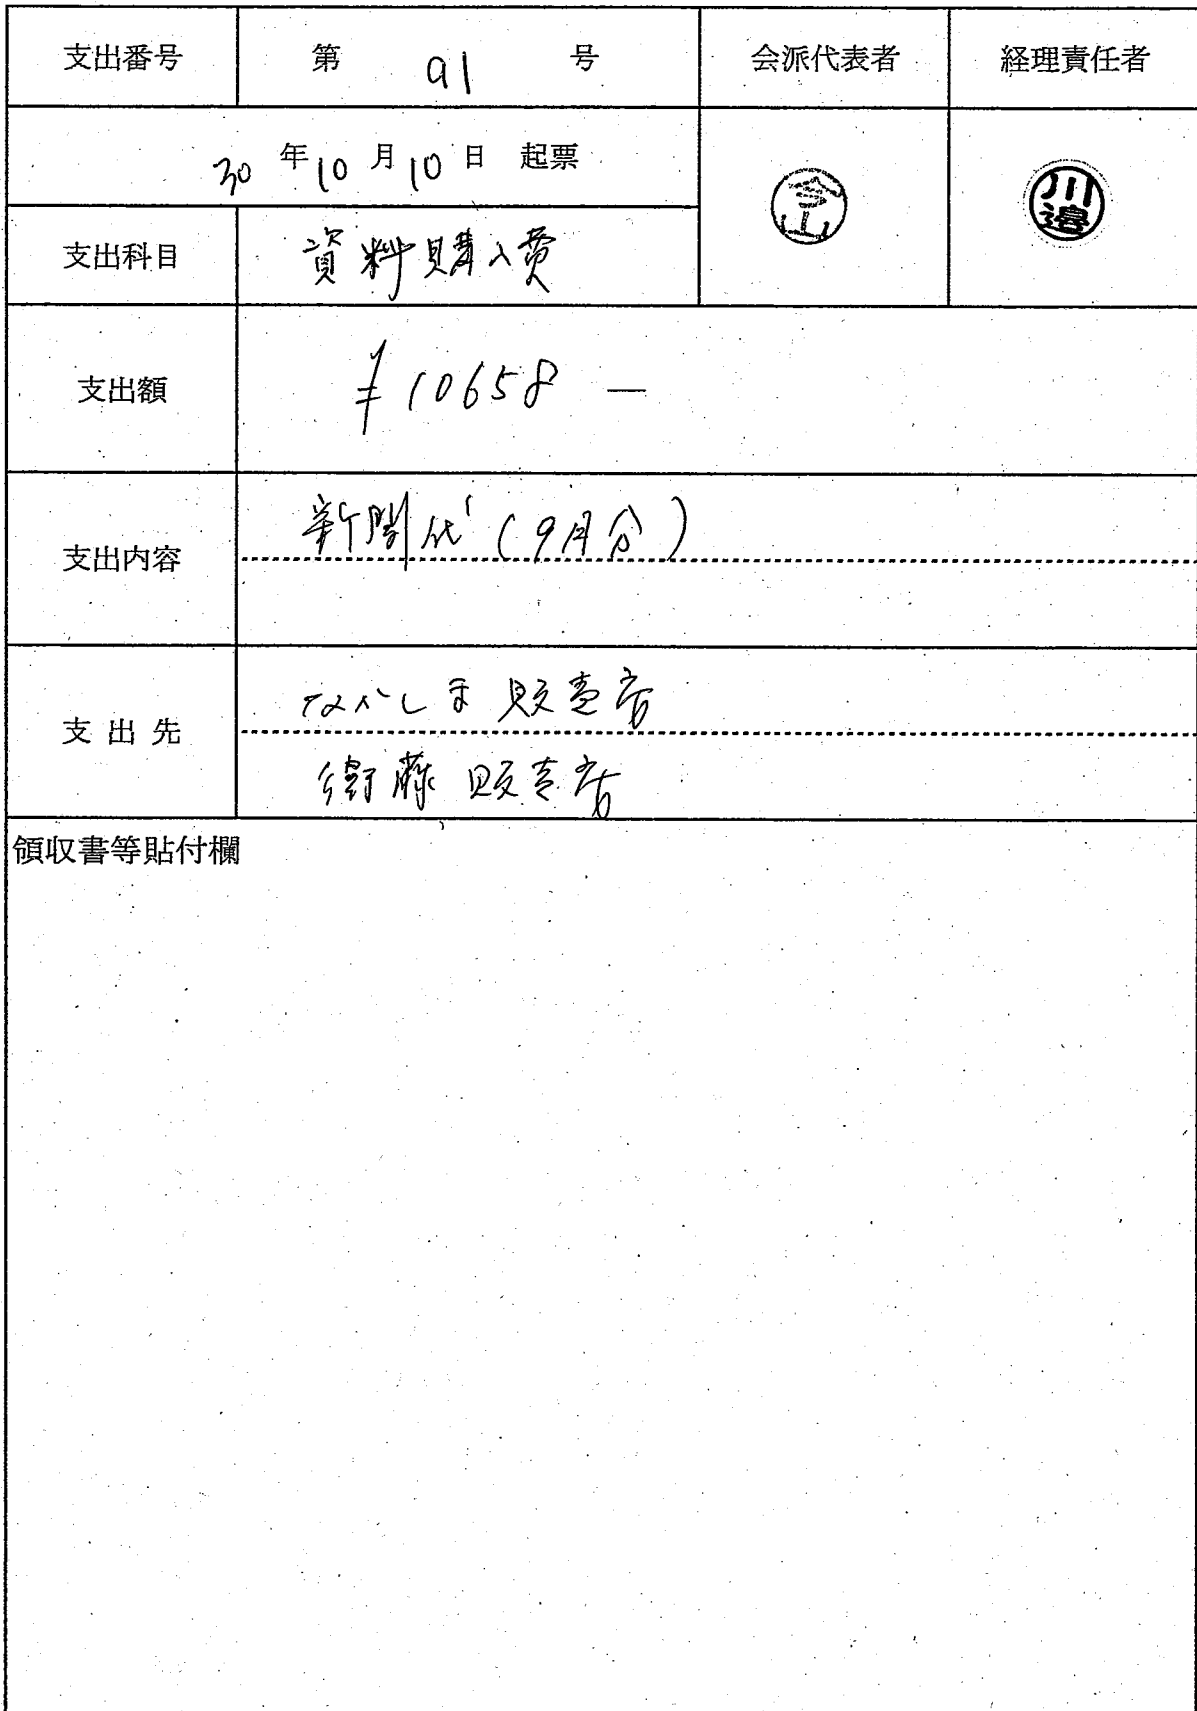 支出番号 第 91 号 会派代表者 経理責任者
30 年 10 月 10 日 起票
今山 川邉
支出科目 資料購入費
支出額 ¥10658 —
支出内容 新聞代(9月分)
支出先 なかしま販売店
衛藤販売店
領収書等貼付欄